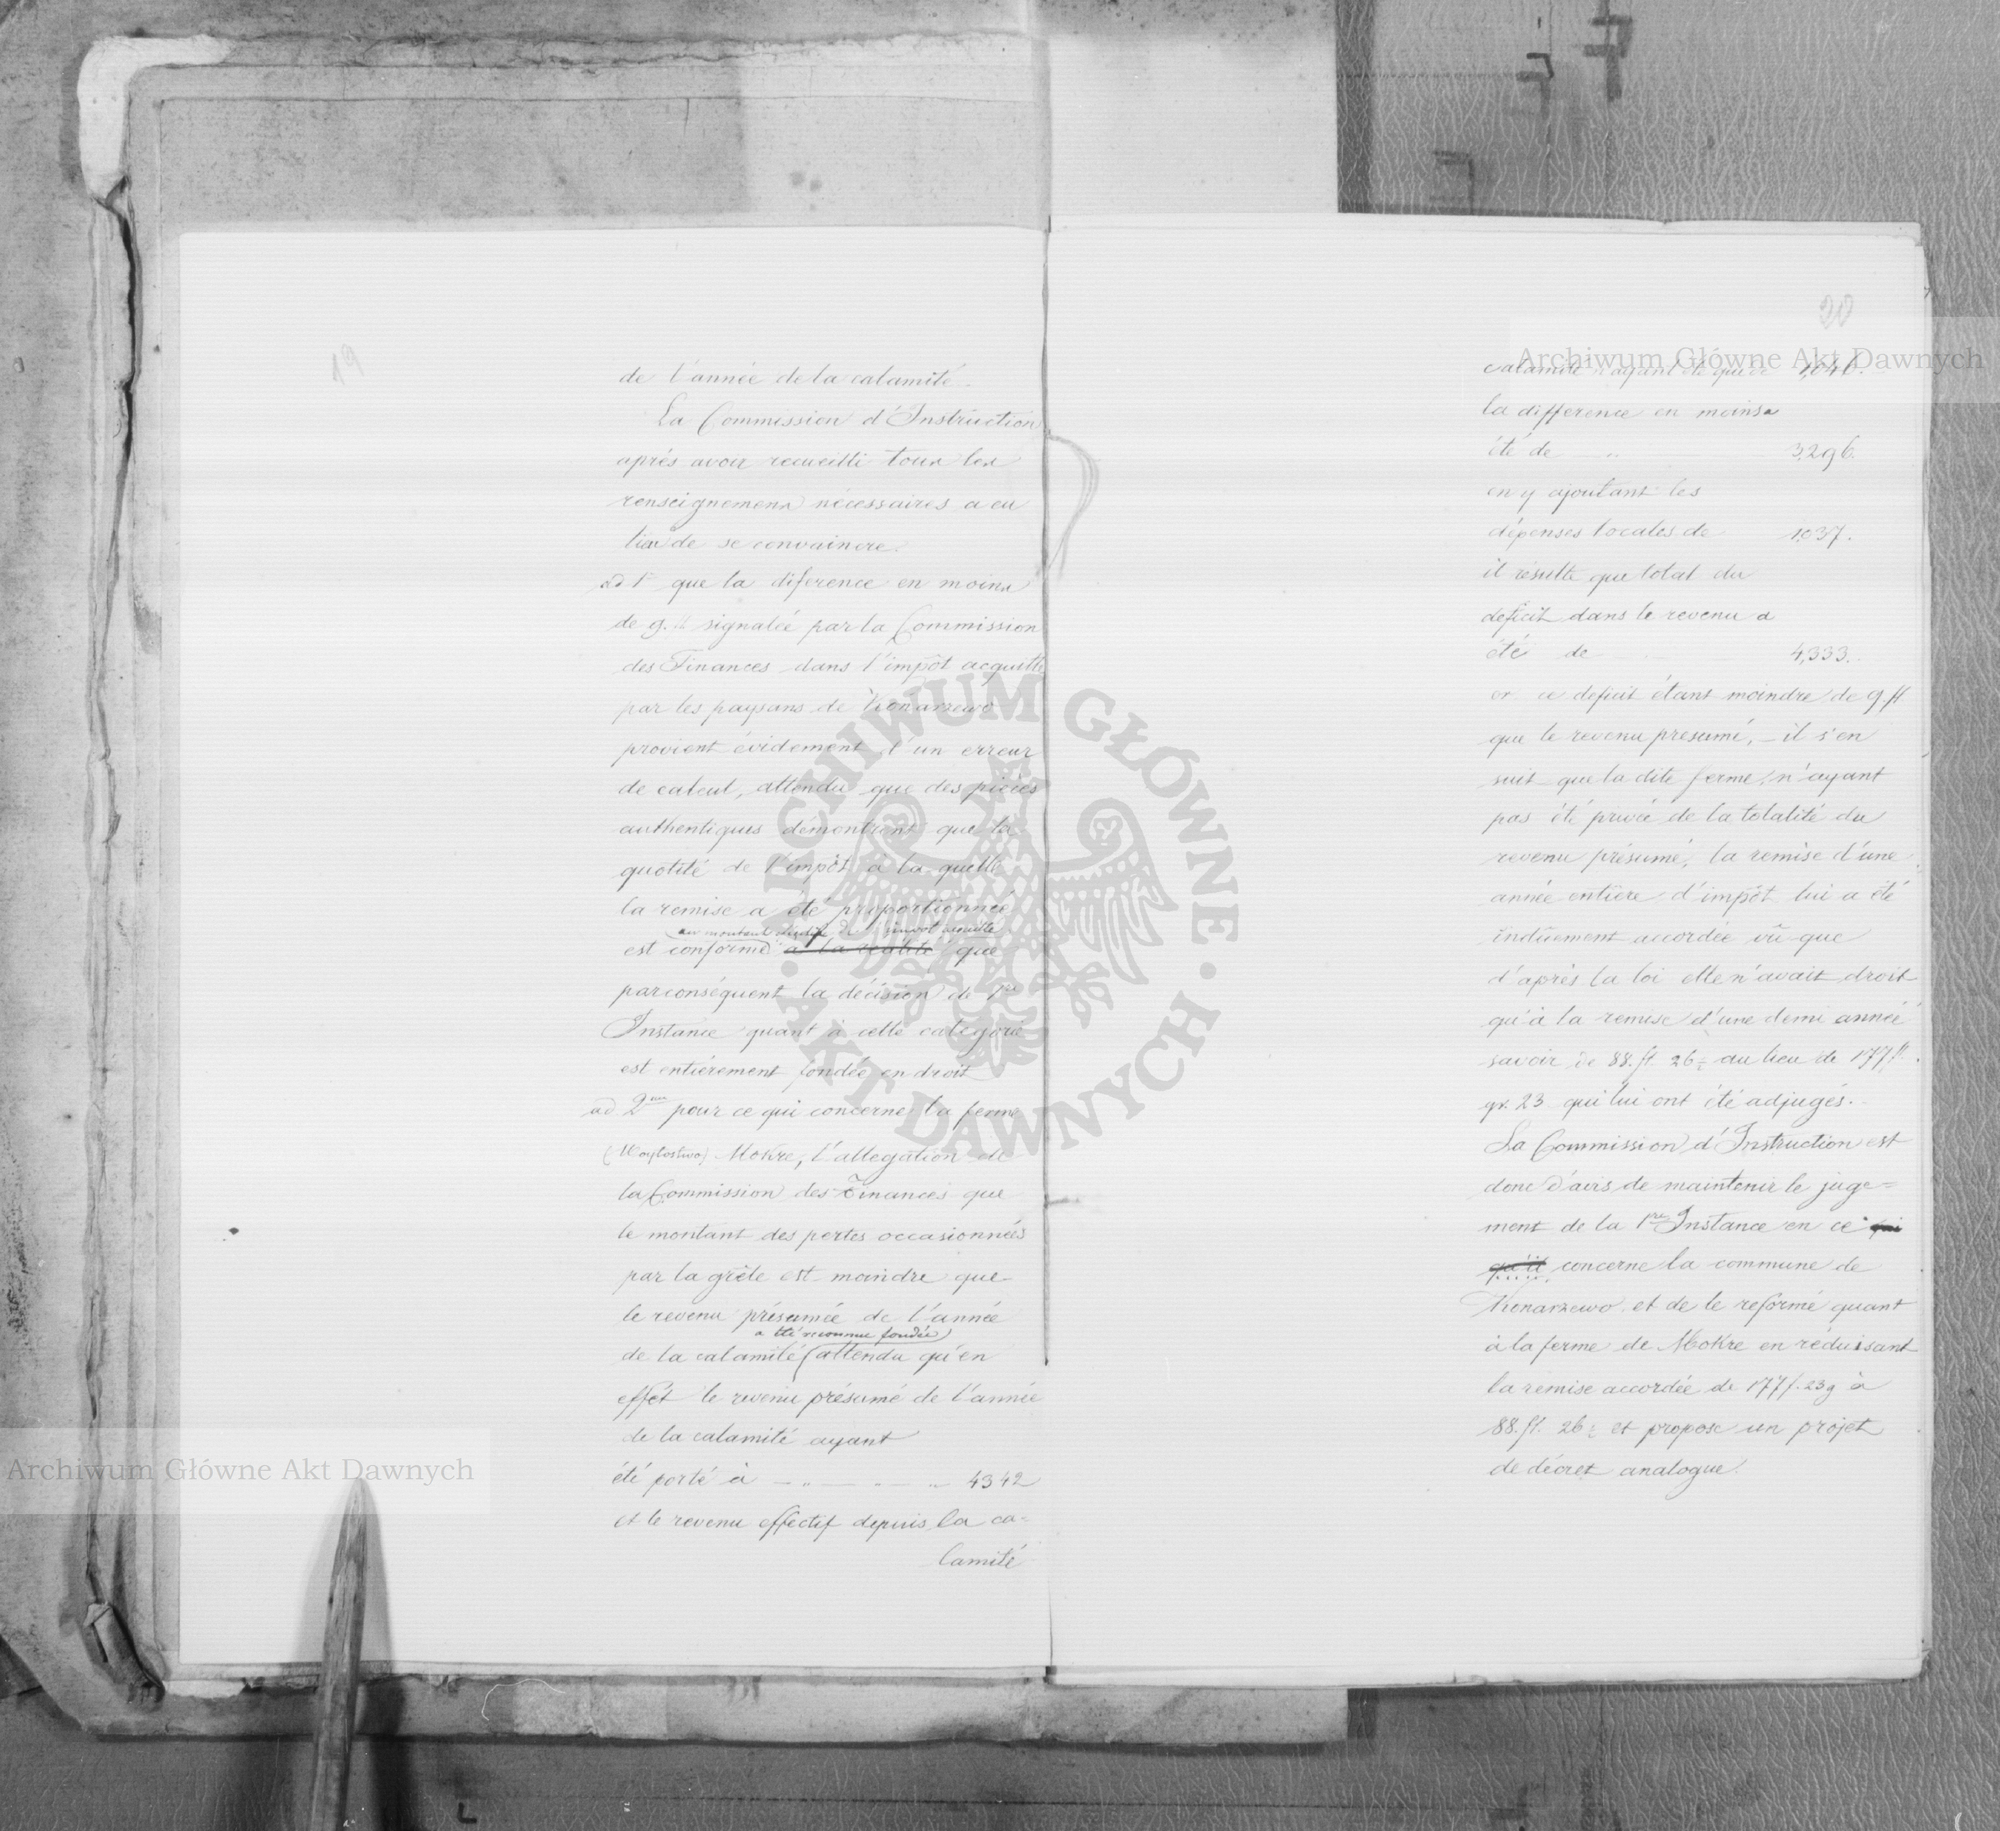 19
de l'année de la calamité.
La Commission d'Instruction
aprés avoir recueilli tous les
renseignemens nécessaires a eu
lieu de se convaincre.
ad 1º que la diference en moins
de 9. fl signalée par la Commission
des Finances dans l'impôt acquitté
par les paysans de Konarzewo
provient évidement d'un erreur
de calcul, attendu que des pièces
authentiques demontrent que la
quotité de l'impôt à la quelle
la remise a été proportionnée
au montant de impôt acquitté
est conforme à la réalité que
parconséquent la décision de 1re
Instance quant à cette categorie
est entiérement fondée en droit
ad 2do pour ce qui concerne la ferme
(Woytostwo) Mokre, l'allegation de
la Commission des Finances que
le montant des pertes occasionnées
par la grêle est moindre que
le revenu présumée de l'année
a été reconnue fondée
de la calamité (attendu qu'en
effet le revenu présumé de l'année
de la calamité ayant
été porté à — „ — „ — „ 4342
et le revenu effectif depuis la ca=
lamité
20
calamité n'ayant été que de 1,046.
la difference en moins a
été de „ 3,296.
en y ajoutant les
dépenses locales de 1,037.
il résulte que total du
deficit dans le revenu a
été de 4,333.
or ce deficit étant moindre de 9 fl
que le revenu presumé, – il s'en
suit que la dite ferme n'ayant
pas été privée de la totalité du
revenu présumé, la remise d'une
année entière d'impôt lui a été
indûement accordée vû que
d'après la loi elle n'avait droit
qu'à la remise d'une demi année
savoir de 88. fl. 26½ au lieu de 177 fl.
gr. 23 qui lui ont été adjugés.
La Commission d'Instruction est
donc d'avis de maintenir le juge=
ment de la 1re Instance en ce qui
qu'il concerne la commune de
Konarzewo et de le reformé quant
à la ferme de Mokre en réduisant
la remise accordée de 177 f. 23 g à
88. fl. 26½ et propose un projet
de décret analogue.
Archiwum Główne Akt Dawnych
Archiwum Główne Akt Dawnych
ARCHIWUM GŁÓWNE · AKT DAWNYCH ·